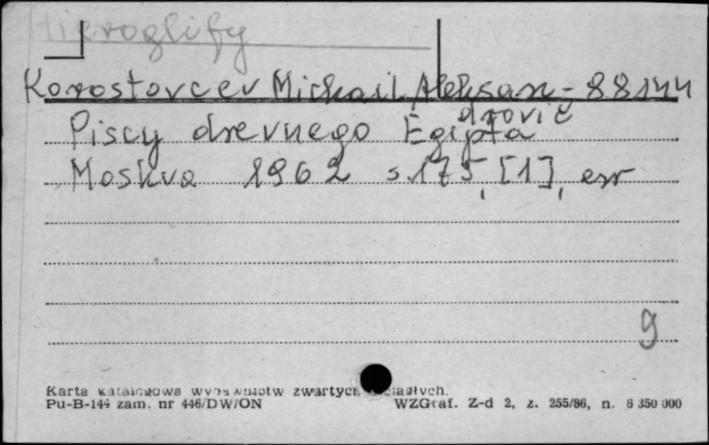 Hieroglify
Korostovcev Michail Aleksan- 88144
drovič
Piscy drevnego Egipta
Moskva 1962 s. 175, [1], err
9
Karta katalogowa wydawnictw zwartych i ciągłych.
Pu-B-144 zam. nr 446/DW/ON WZGraf. Z-d 2, z. 255/86, n. 6 350 000